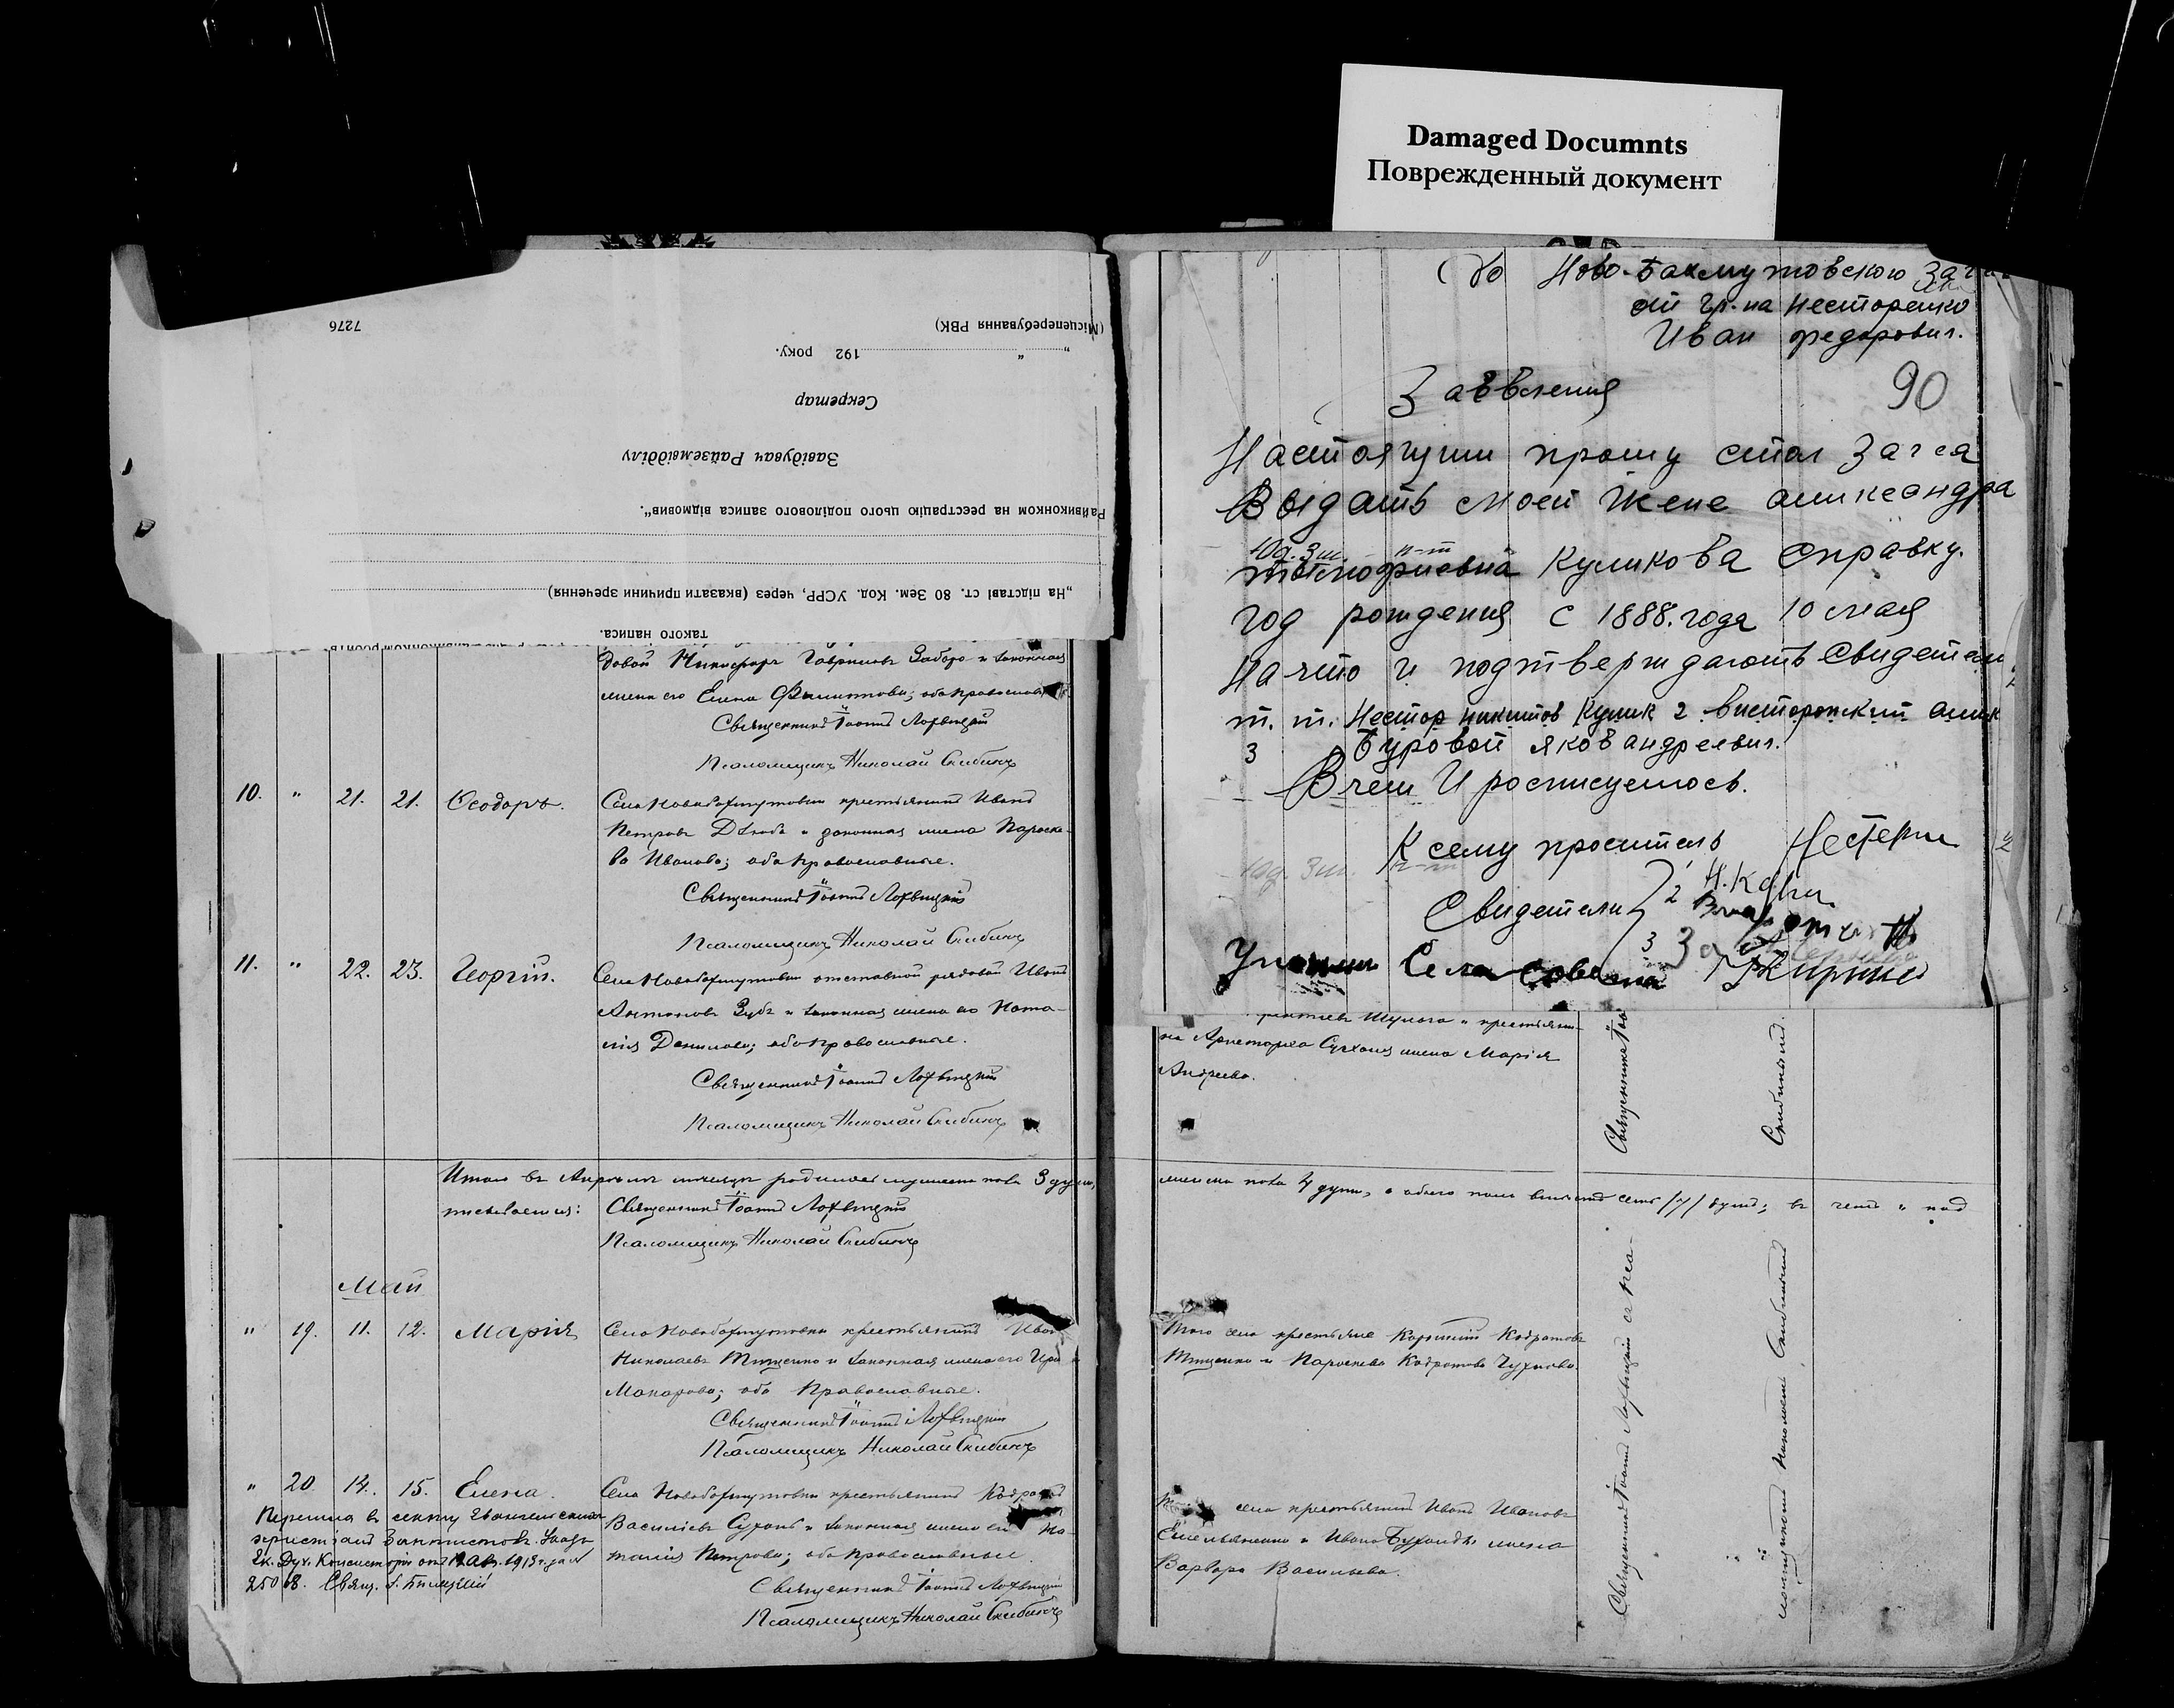 Damaged Documnts
Поврежденный документ
7276
(Місцеперебування РВК)
„ “ 192 року.
Секретар
Завідувач Райземвідділу
Райвиконком на реєстрацію цього поділового запиcа відмовив“.
„На підставі ст. 80 Зем. Код. УСРР, через (вказати причини зречення)
такого напису.
довой Никифоръ Гавриловъ Забара и законная
жена его Елена Филиппова; оба православные
Священникъ Іоаннъ Лохвицкій
Псаломщикъ Николай Скибинъ
10. " 21. 21. Ѳеодоръ. Села Новобахмутовки крестьянинъ Иванъ
Петровъ Дзюба и законная жена Параске-
ва Иванова; оба православные.
Священникъ Іоаннъ Лохвицкій
Псаломщикъ Николай Скибинъ
11. " 22. 23. Георгій. Села Новобахмутовки отставной рядовой Иванъ
Антоновъ Зубъ и законная жена его Ната-
лія Данилова; оба православные.
Священникъ Іоаннъ Лохвицкій
Псаломщикъ Николай Скибинъ
Итого въ Апрѣлѣ мѣсяцѣ родилось мужеска пола 3 души,
писываемся: Священникъ Іоаннъ Лохвицкій
Псаломщикъ Николай Скибинъ
Май
" 19. 11. 12. Марія Села Новобахмутовки крестьянинъ Иванъ
Николаевъ Тищенко и законная жена его
Макарова; оба православные.
Священникъ Іоаннъ Лохвицкій
Псаломщикъ Николай Скибинъ
" 20. 14. 15. Елена. Села Новобахмутовки крестьянинъ
Василіевъ Сухань и законная жена его На-
талія Петрова; оба православные.
Священникъ Іоаннъ Лохвицкій
Псаломщикъ Николай Скибинъ
Перешла въ секту Евангельскихъ
христіанъ Баптистовъ. Указъ
Ек. Дух. Консисторіи отъ 19 Авг. 1913 г. за №
25068. Свящ.
До Ново-Бахмутовского Загса
от гр-на Несторенко
Иван федорович.
Заввления
90
Настоящим прошу стол Загса
Выдать моей жене аликсандра
Куликова справку.
год рождения с 1888. года 10 мая
На что и подтверждають свидетели
т. т. Нестор никитов Кулик 2
3 Буровой яков андреевич.
В чем И росписуемось.
К сему проситель Нестерен
Свидетели
2
3
Села
на Аристарха Суханя жена Марія
Андреева.
Священникъ
Скибинъ
женска пола 4 души, а обоего пола вмѣстѣ семь /7/ душъ; въ чемъ и под
Того села крестьяне Корнилій Кодратовъ
Тищенко и Параскева Кодратова Чухнова.
села крестьянинъ Иванъ Ивановъ
Емельяненко и Ивана жена
Варвара Васильева.
Священникъ Іоаннъ Лохвицкій съ пса-
ломщикомъ Николаемъ Скибинымъ